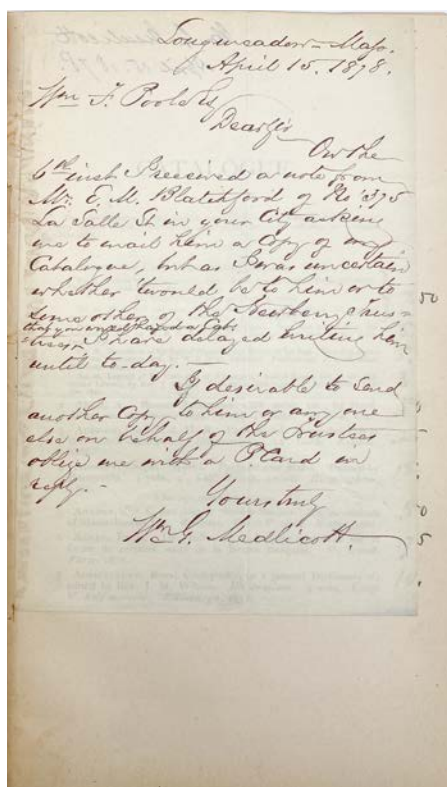 Longmeadow - Mass.
April 15. 1878.
Wm F. Poole Esq
Dear Sir
On the
6th inst I received a note from
Mr. E. M. Blatchford of No 375
La Salle St in your City asking
me to mail him a Copy of my
Catalogue, but as I was uncertain
whether 'twould be to him or to
some other of the Newberry Trus=
that you would hand a Cat.
=tees, I have delayed writing him
until to-day. —
If desirable to send
another Copy to him or any one
else on behalf of the Trustees
oblige me with a P. Card in
reply. -
Yours truly
Wm G. Medlicott.
50
0
5